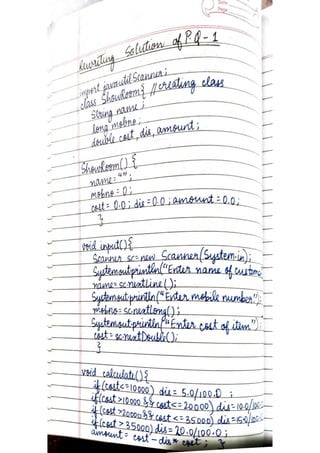 Rewriting Solution of P.Q-1
import java.util.Scanner;
class ShowRoom{ //creating class
String name;
long mobno;
double cost, dis, amount;
ShowRoom() {
name = "";
mobno = 0;
cost = 0.0; dis = 0.0; amount = 0.0;
}
void input(){
Scanner sc = new Scanner(System.in);
System.out.println("Enter name of custome
name = sc.nextLine();
System.out.println("Enter mobile number");
mobno = sc.nextLong();
System.out.println("Enter cost of item");
cost = sc.nextDouble();
}
void calculate(){
if(cost<=10000) dis = 5.0/100.0;
if(cost>10000 && cost<=20000) dis=10.0/100.
if(cost>20000 && cost<=35000) dis=15.0/100.
if(cost>35000) dis=20.0/100.0;
amount = cost - dis * cost; }